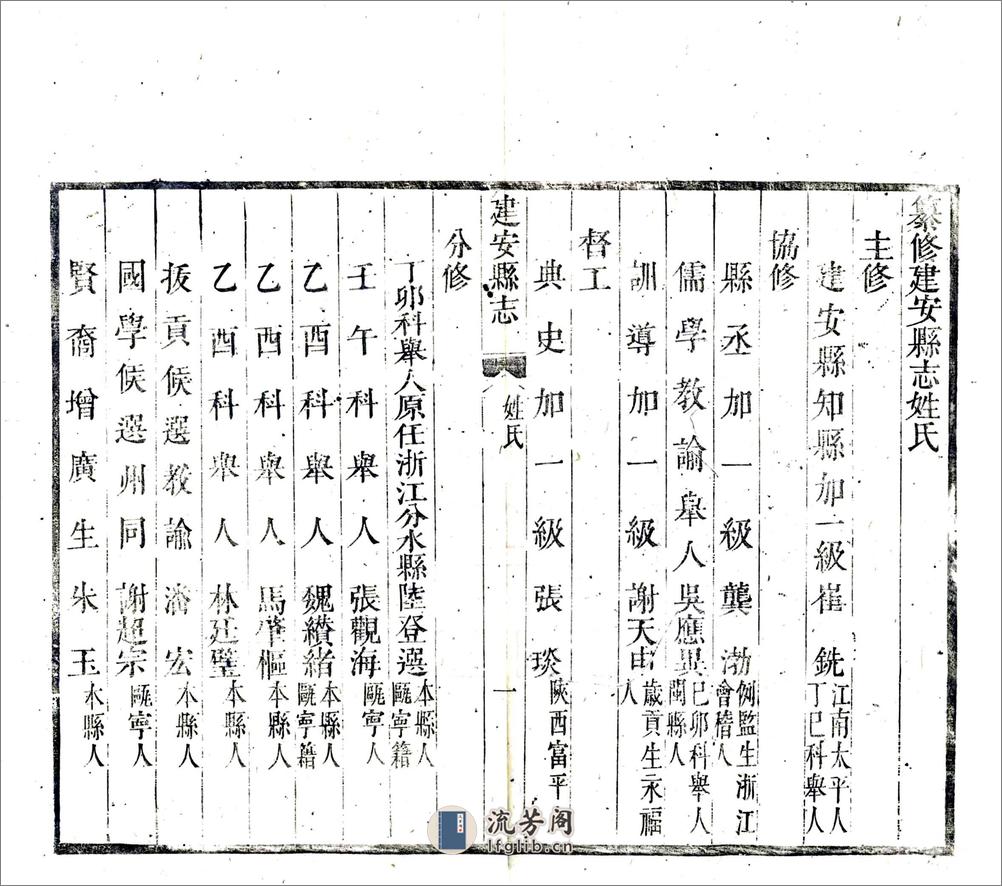 纂修建安縣志姓氏
主修
建安縣知縣加一級崔銑江南太平人丁巳科舉人
協修
縣丞加一級龔渤例監生浙江會稽人
儒學教諭舉人吳應異己卯科舉人閩縣人
訓導加一級謝天由歲貢生永福人
督工
典史加一級張琰陝西富平
建安縣志 姓氏 一
分修
丁卯科舉人原任浙江分水縣陸登選本縣人甌寧籍
壬午科舉人張觀海甌寧人
乙酉科舉人魏纘緒本縣人甌寧籍
乙酉科舉人馬肇樞本縣人
乙酉科舉人林廷璧本縣人
拔貢候選教諭潘宏本縣人
國學候選州同謝超宗甌寧人
賢裔增廣生朱玉本縣人
流芳阁
lfglib.cn